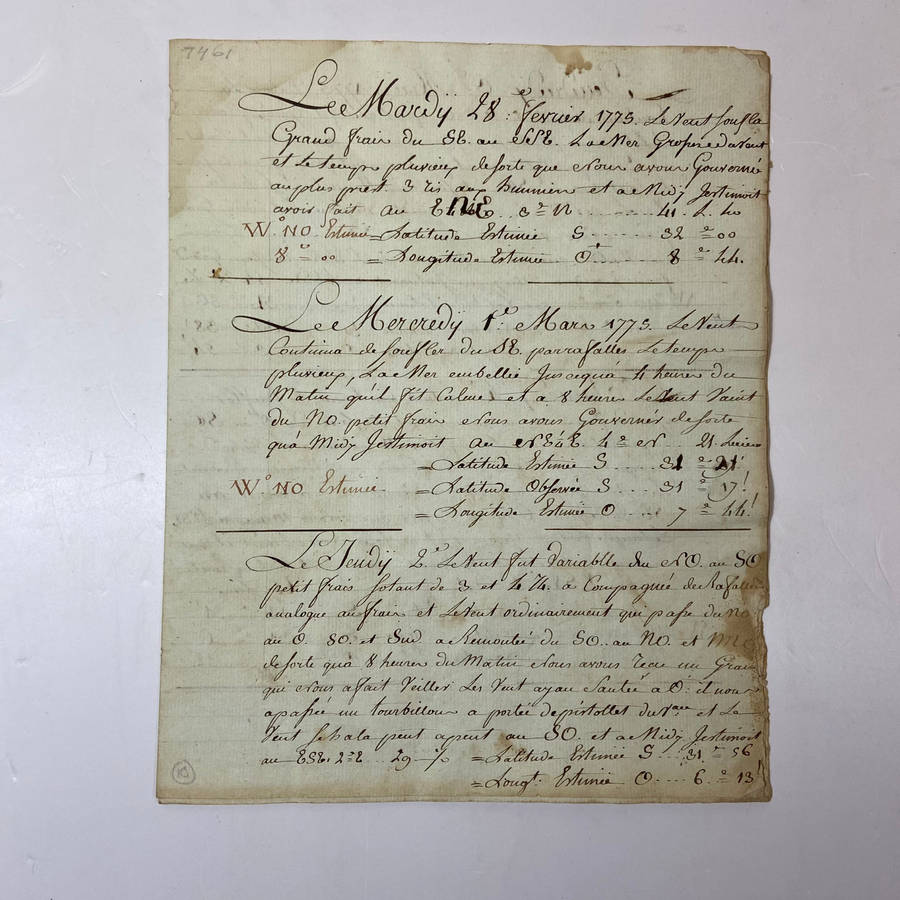 7461
Le Mardij 28e fevrier 1775. Le Vent soufla
Grand frain du SE. au ENE. La Mer Grosse du Vent
et Le temps pluvieux de sorte que Nous avons Gouverné
au plus prest 3 ris aux hunniers et a Midy Jestimoit
avoir fait au E NE 3° N 41 L 40
W° NO Estimée = Latitude Estimée S 32 ° 00
8 ° 00 = Longitude Estimée O 8 ° 44.
Le Mercredij 1er Mars 1775. Le Vent
Continua de soufler du SE. par raffalles Le temps
pluvieux, La Mer embellie Jusqua 4 heures du
Matin qu'il fit Calme et a 8 heures Le Vent Vaint
du NO. petit frain Nous avons Gouvernés de sorte
qua Midy Jestimoit au NE¼E. 4° N 21 Lieues
= Latitude Estimée S 31 ° 21'
W° NO Estimée = Latitude Observée S 31 ° 17'
= Longitude Estimée O 7 ° 44'
Le Jeudij 2e Le Vent fut Variable du NO. au SO
petit frais sotant de 3 et 4 ¼. a Compagnée de Rafalles
analogue au frain et Le Vent ordinairement qui passe du NO
au O. SO. et Sud a Remontée du SO. au NO. et NNO
de sorte qua 8 heures du Matin Nous avons Recu un Grain
qui Nous a fait Veiller Les Vent ayan Sautée a O. il nous
a passée un tourbillon a portée de pistollet du Vau et Le
Vent se hala peut a peut au SO. et a Midy Jestimoit
au ESE. 2° E 29 = Latitude Estimée S 31 ° 56
= Longt. Estimée O 6 ° 13'